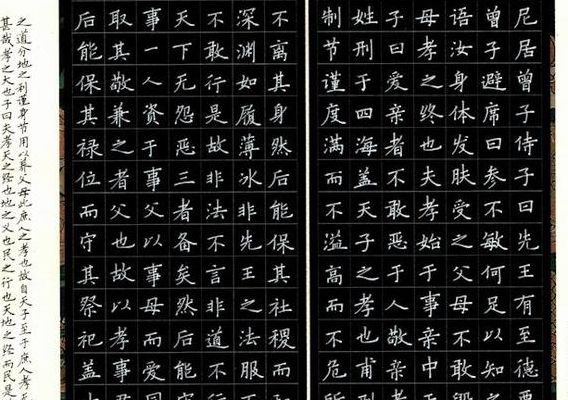 尼居曾子侍子曰先王有至德要
曾子避席曰参不敏何足以知之
语汝身体发肤受之父母不敢毁
母孝之终也夫孝始于事亲中于
子曰爱亲者不敢恶于人敬亲者
姓刑于四海者盖天子之孝也甫刑
制节谨度满而不溢高而不危所
不离其身然后能保其社稷而
深渊如履薄冰非先王之法服不
不敢行是故非法不言非道不行
天下无怨恶三者备矣然后能守
事一人资于事父以事母而爱同
取其敬兼之者父也故以孝事君
后能保其禄位而守其祭祀盖士
之道分地之利谨身节用以养父母此庶人之孝也故自天子至于庶人孝无
甚哉孝之大也子曰夫孝天之经也地之义也民之行也天地之经而民是